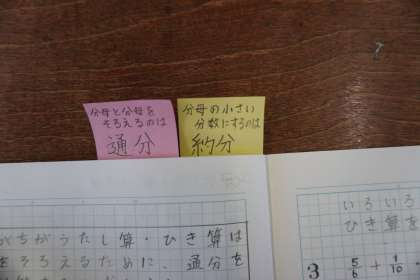 分母と分母を
そろえるのは
通分
分母の小さい
分数にするのは
納分
がちがうたし算・ひき算は
をそろえるために、通分を
いろいろ
ひき算を
3 5/6 + 1/10